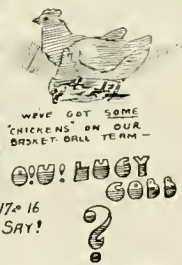 WE'VE GOT SOME
"CHICKENS" ON OUR
BASKET-BALL TEAM—
O!U! LUCY
COBB
17 to 16
SAY!
?